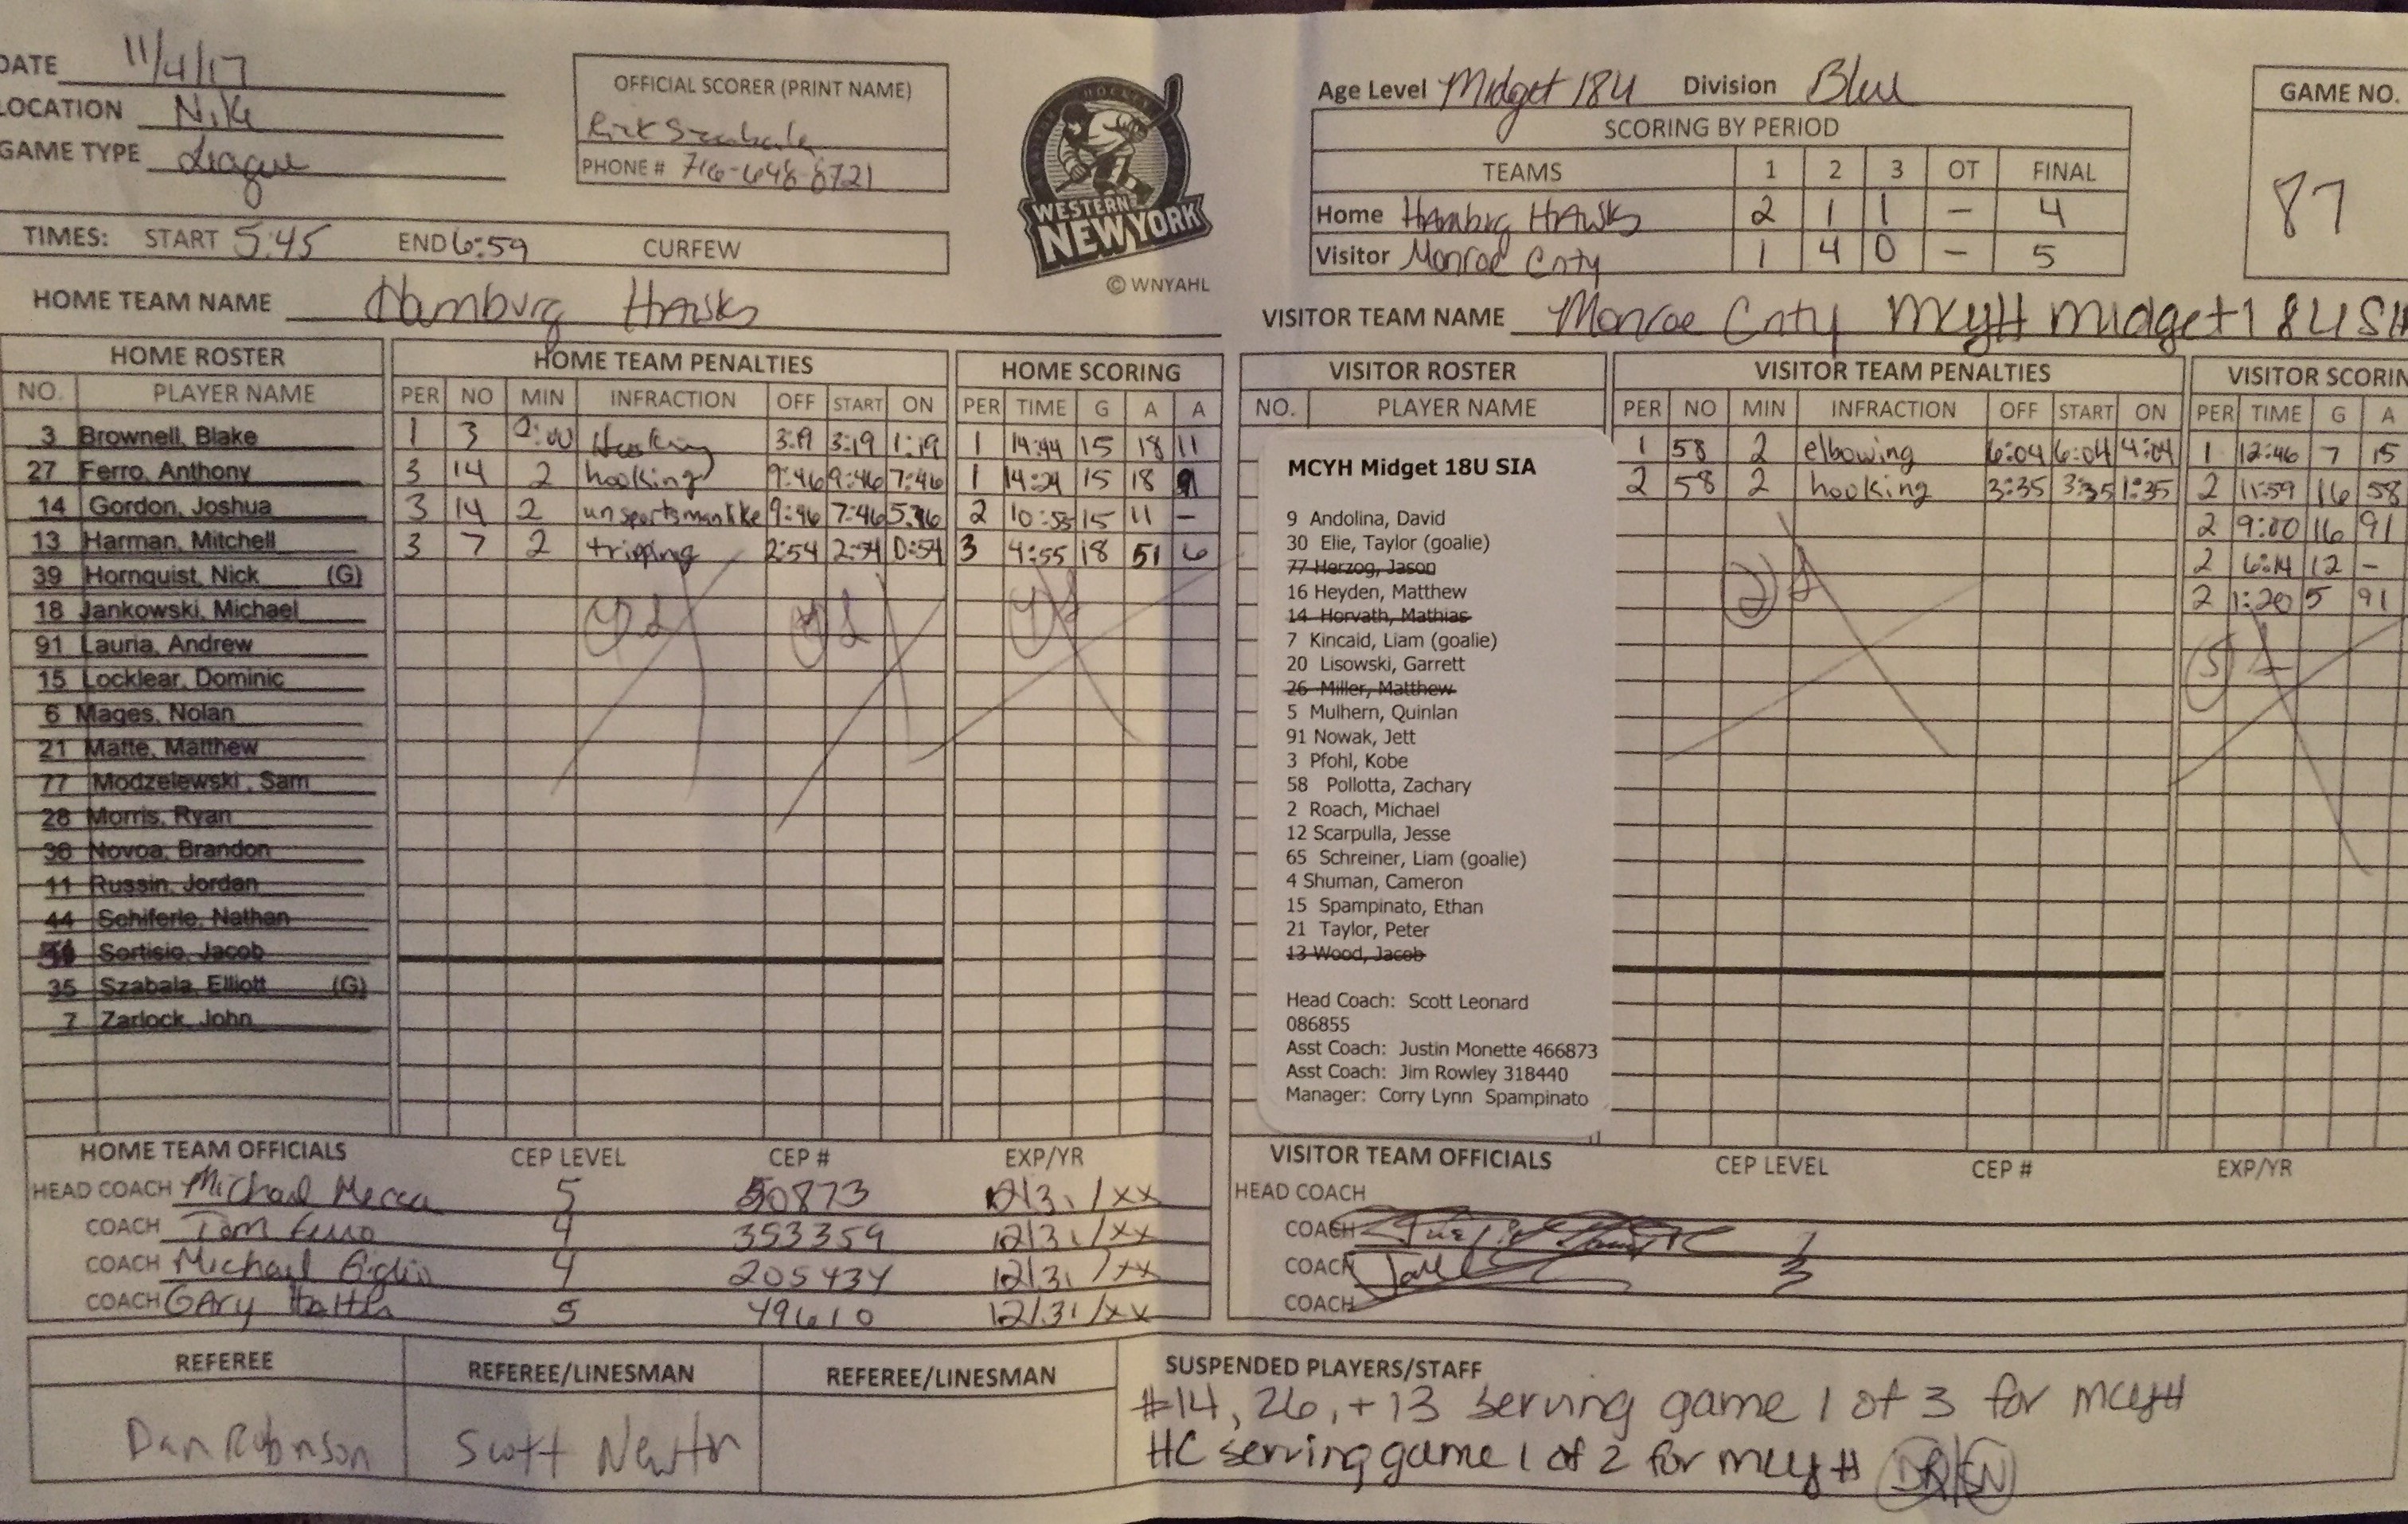 DATE 11/4/17
LOCATION Nike
GAME TYPE League
OFFICIAL SCORER (PRINT NAME)
Rick
PHONE # 716-648-8721
TIMES: START 5:45 END 6:59 CURFEW
WESTERN NEW YORK
© WNYAHL
Age Level Midget 18U Division Blue
SCORING BY PERIOD
TEAMS 1 2 3 OT FINAL
Home Hamburg Hawks 2 1 1 – 4
Visitor Monroe Cnty 1 4 0 – 5
GAME NO.
87
HOME TEAM NAME Hamburg Hawks
VISITOR TEAM NAME Monroe Cnty MCYH Midget 18U
HOME ROSTER
NO. PLAYER NAME
3 Brownell, Blake
27 Ferro, Anthony
14 Gordon, Joshua
13 Harman, Mitchell
39 Hornquist, Nick (G)
18 Jankowski, Michael
91 Lauria, Andrew
15 Locklear, Dominic
6 Mages, Nolan
21 Matte, Matthew
77 Modzelewski, Sam
28 Morris, Ryan
36 Novoa, Brandon
11 Russin, Jordan
44 Schiferle, Nathan
Sortisio, Jacob
35 Szabala, Elliott (G)
7 Zarlock, John
HOME TEAM PENALTIES
PER NO MIN INFRACTION OFF START ON
1 3 2:00 Hooking 3:19 3:19 1:19
3 14 2 hooking 9:46 9:46 7:46
3 14 2 unsportsmanlike 9:46 7:46 5:46
3 7 2 tripping 2:54 2:54 0:54
HOME SCORING
PER TIME G A A
1 14:44 15 18 11
1 14:24 15 18
2 10:53 15 11 –
3 4:55 18 51 6
VISITOR ROSTER
NO. PLAYER NAME
MCYH Midget 18U SIA
9 Andolina, David
30 Elie, Taylor (goalie)
77 Herzog, Jason
16 Heyden, Matthew
14 Horvath, Mathias
7 Kincaid, Liam (goalie)
20 Lisowski, Garrett
26 Miller, Matthew
5 Mulhern, Quinlan
91 Nowak, Jett
3 Pfohl, Kobe
58 Pollotta, Zachary
2 Roach, Michael
12 Scarpulla, Jesse
65 Schreiner, Liam (goalie)
4 Shuman, Cameron
15 Spampinato, Ethan
21 Taylor, Peter
13 Wood, Jacob
Head Coach: Scott Leonard
086855
Asst Coach: Justin Monette 466873
Asst Coach: Jim Rowley 318440
Manager: Corry Lynn Spampinato
VISITOR TEAM PENALTIES
PER NO MIN INFRACTION OFF START ON
1 58 2 elbowing 6:04 6:04 4:04
2 58 2 hooking 3:35 3:35 1:35
2
VISITOR SCORIN
PER TIME G A
1 12:46 7 15
2 11:59 16 58
2 9:00 16 91
2 6:14 12 –
2 1:20 5 91
5
HOME TEAM OFFICIALS CEP LEVEL CEP # EXP/YR
HEAD COACH Michael Mecca 5 50873 12/31/xx
COACH Tom Ferro 4 353359 12/31/xx
COACH Michael 4 205434 12/31/xx
COACH Gary 5 49610 12/31/xx
VISITOR TEAM OFFICIALS CEP LEVEL CEP # EXP/YR
HEAD COACH
COACH
COACH
COACH
REFEREE
Dan Robinson
REFEREE/LINESMAN
Scott
REFEREE/LINESMAN
SUSPENDED PLAYERS/STAFF
#14, 26, + 13 serving game 1 of 3 for MCYH
HC serving game 1 of 2 for MCYH DR SN